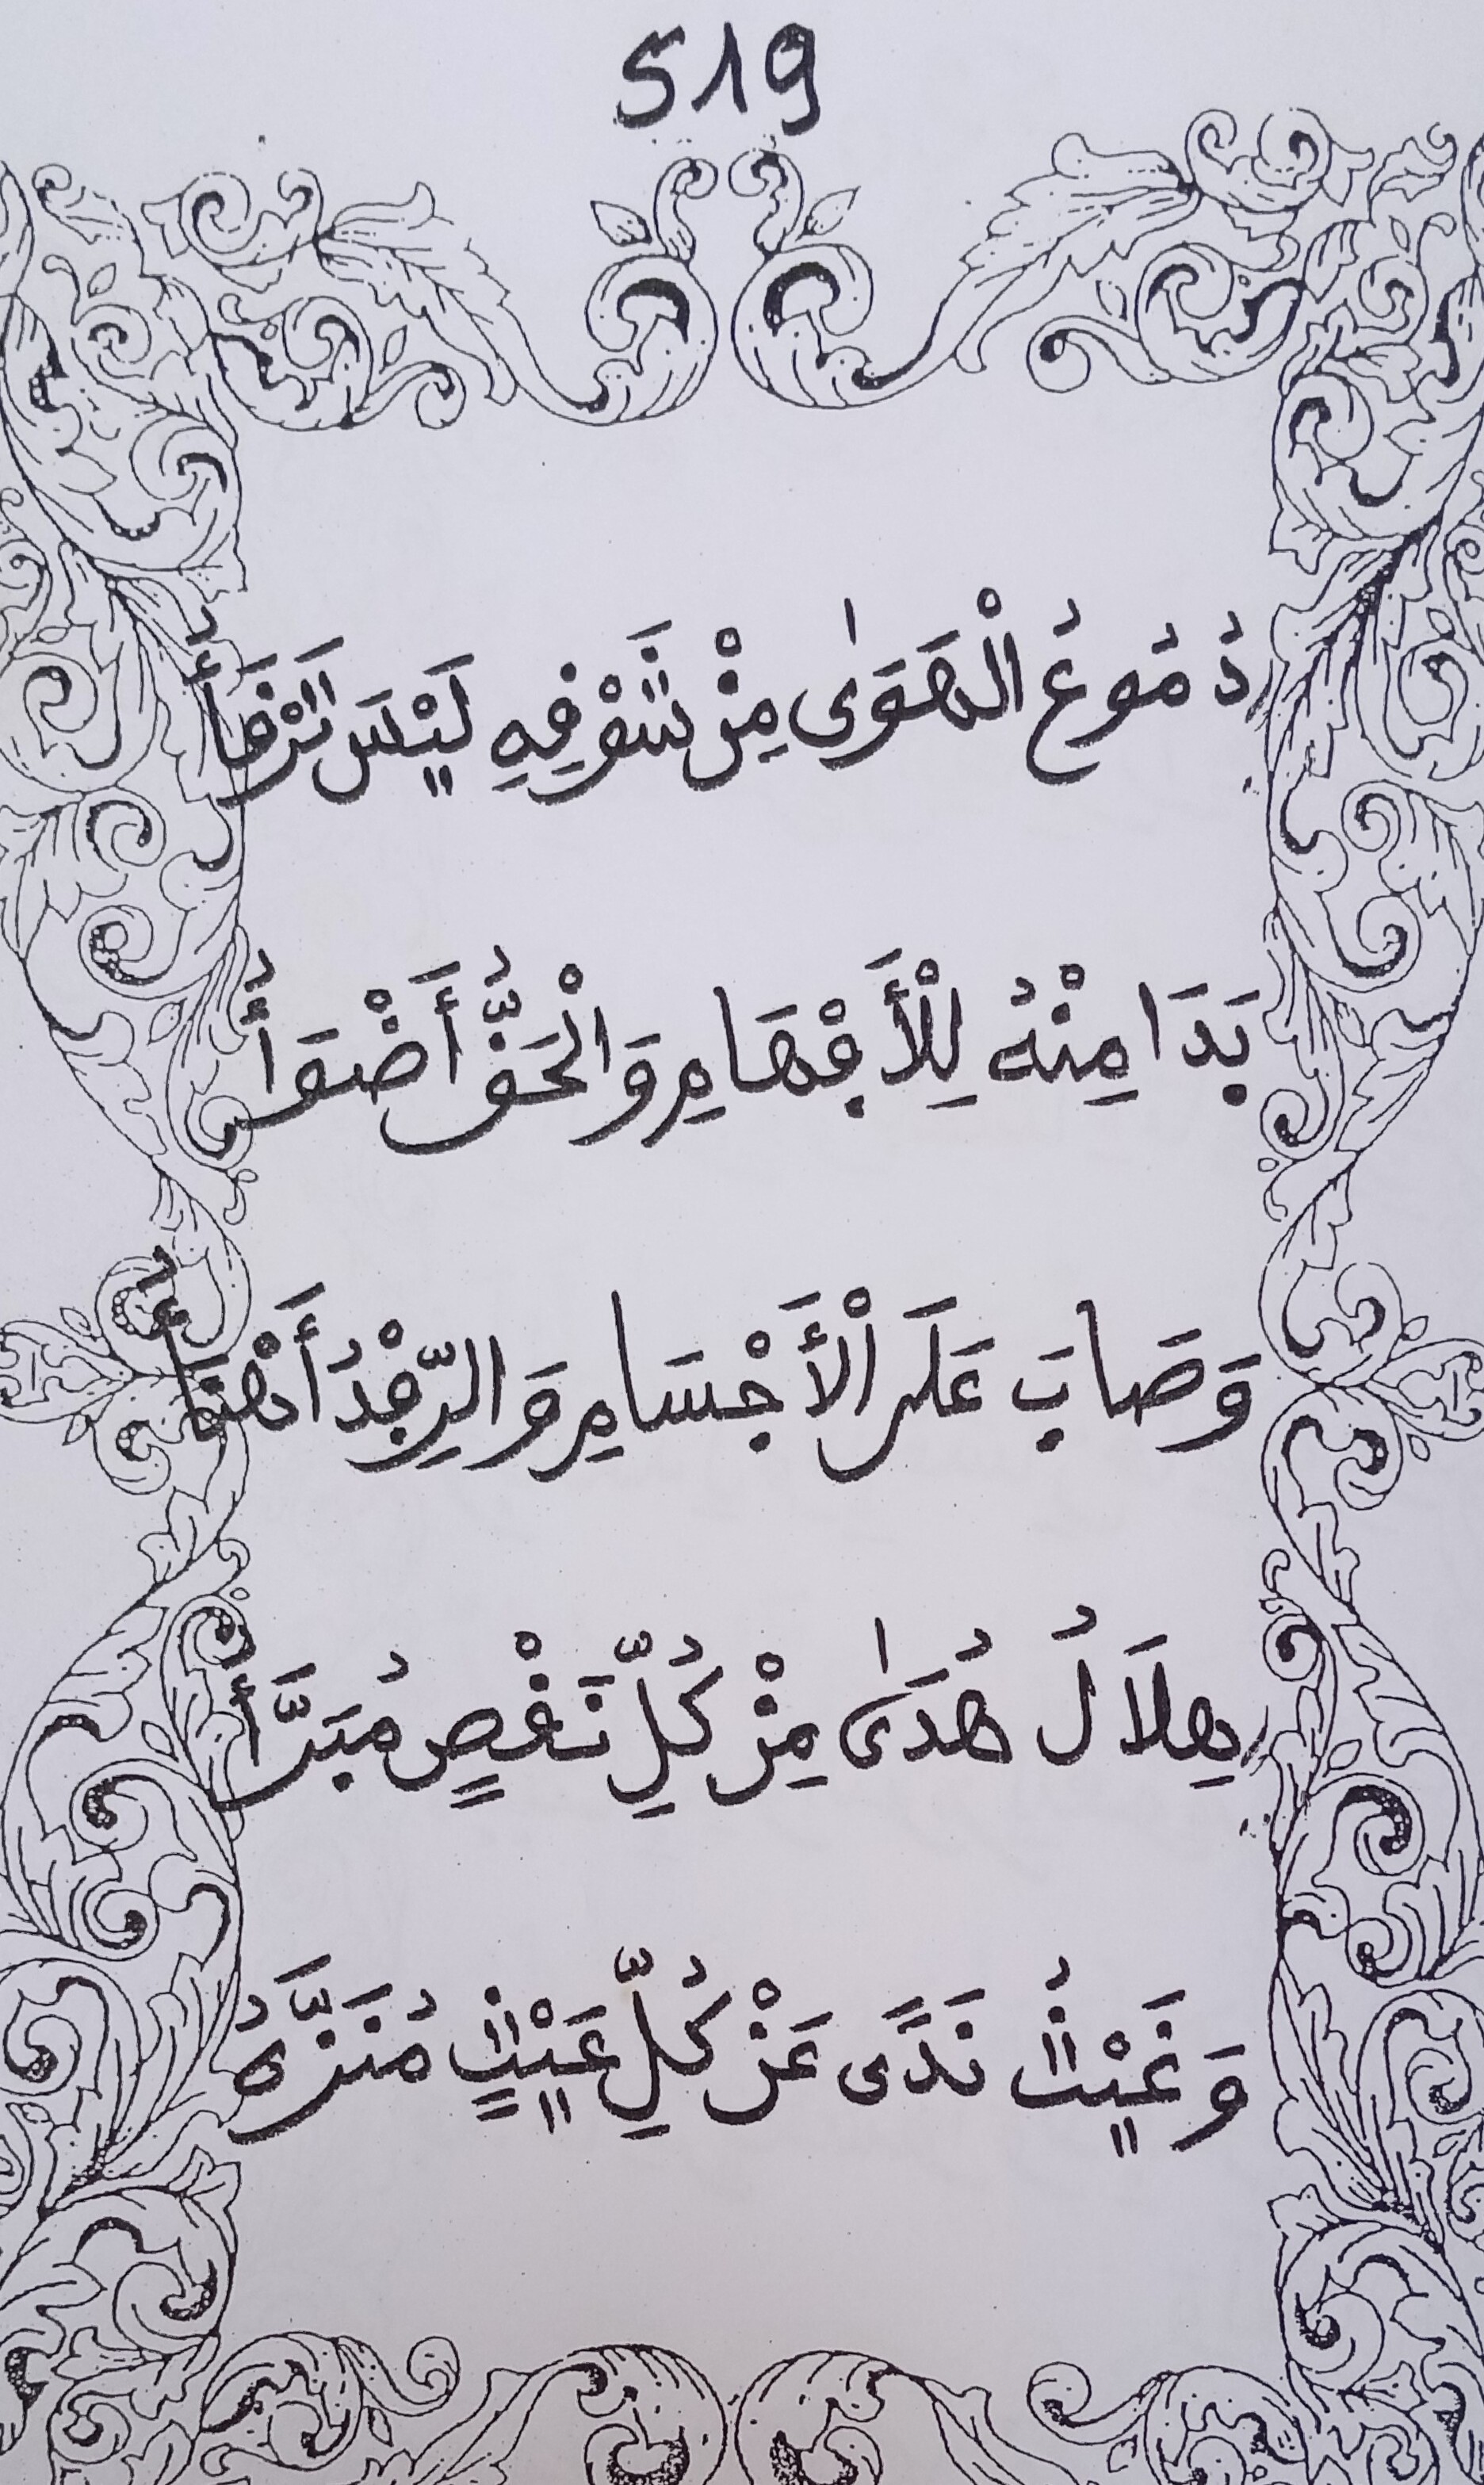 519
دُمُوعُ الْهَوَىٰ مِنْ شَوْقِهِ لَيْسَ تَرْقَأُ
بَدَا مِنْهُ لِلْأَفْهَامِ وَالْحَقُّ أَضْوَأُ
وَصَابَ عَلَى الْأَجْسَامِ وَالرِّفْدُ أَهْنَأُ
هِلَالُ هُدَىٰ مِنْ كُلِّ نَقْصٍ مُبَرَّأُ
وَغَيْثُ نَدًى عَنْ كُلِّ عَيْثٍ مُنَزَّهُ